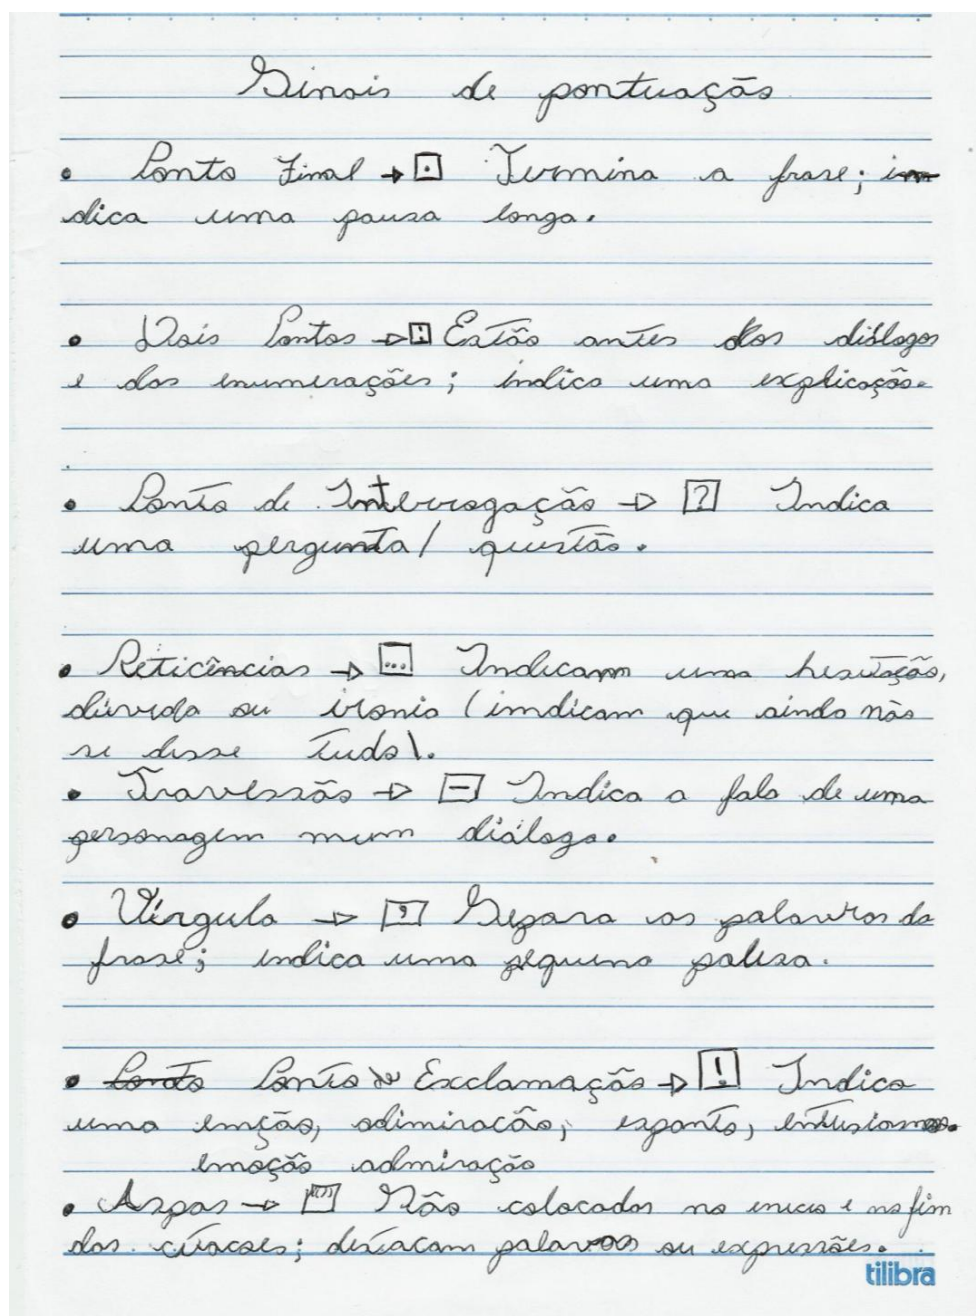 Sinais de pontuação
• Ponto Final → . Termina a frase; in-
dica uma pausa longa.
• Dois Pontos → : Estão antes dos diálogos
e das enumerações; indica uma explicação.
• Ponto de Interrogação → ? Indica
uma pergunta/ questão.
• Reticências → ... Indicam uma hesitação,
dúvida ou ironia (indicam que ainda não
se disse tudo).
• Travessão → — Indica a fala de uma
personagem num diálogo.
• Vírgula → , Separa as palavras da
frase; indica uma pequena pausa.
• Ponto Ponto de Exclamação → ! Indica
uma emção, adimiracão, espanto, entusiasmo.
emoção admiração
• Aspas → """ São colocadas no inicio e no fim
das citacoes; destacam palavras ou expressões.
tilibra